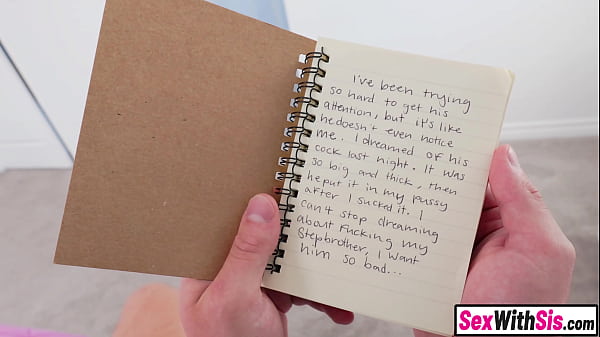 I've been trying
so hard to get his
attention, but it's like
he doesn't even notice
me. I dreamed of his
cock last night. It was
so big and thick, then
he put it in my pussy
after I sucked it. I
can't stop dreaming
about fucking my
Stepbrother, I want
him so bad...
SexWithSis.com